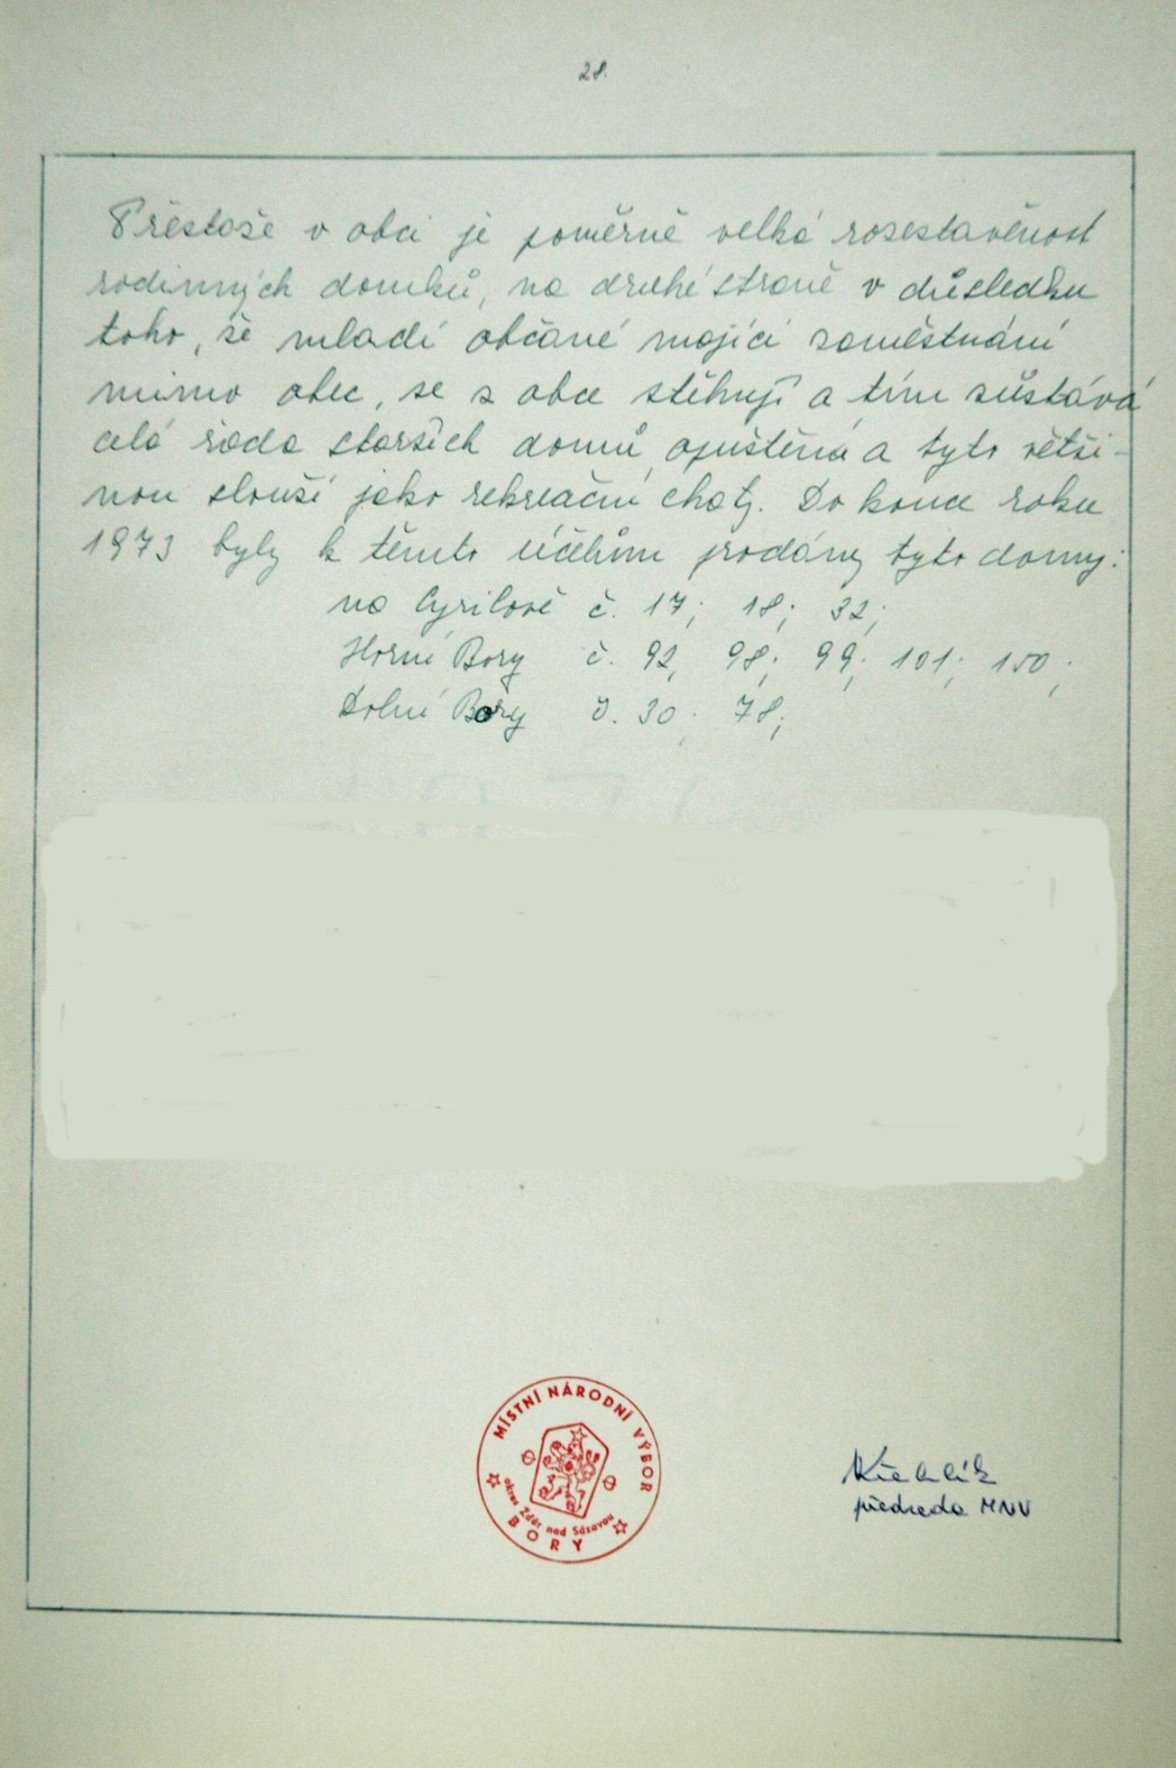 28.
Přestože v obci je poměrně velká rozestavěnost
rodinných domků, na druhé straně v důsledku
toho, že mladí občané mající zaměstnání
mimo obec, se z obce stěhují a tím zůstává
celá řada starších domů opuštěna a tyto větši-
nou slouží jako rekreační chaty. Do konce roku
1973 byly k těmto účelům prodány tyto domy:
na Cyrilově č. 17; 18; 32;
Horní Bory č. 92; 98; 99; 101; 150;
Dolní Bory č. 30; 78;
MÍSTNÍ NÁRODNÍ VÝBOR
okres Žďár nad Sázavou
BORY
předseda MNV